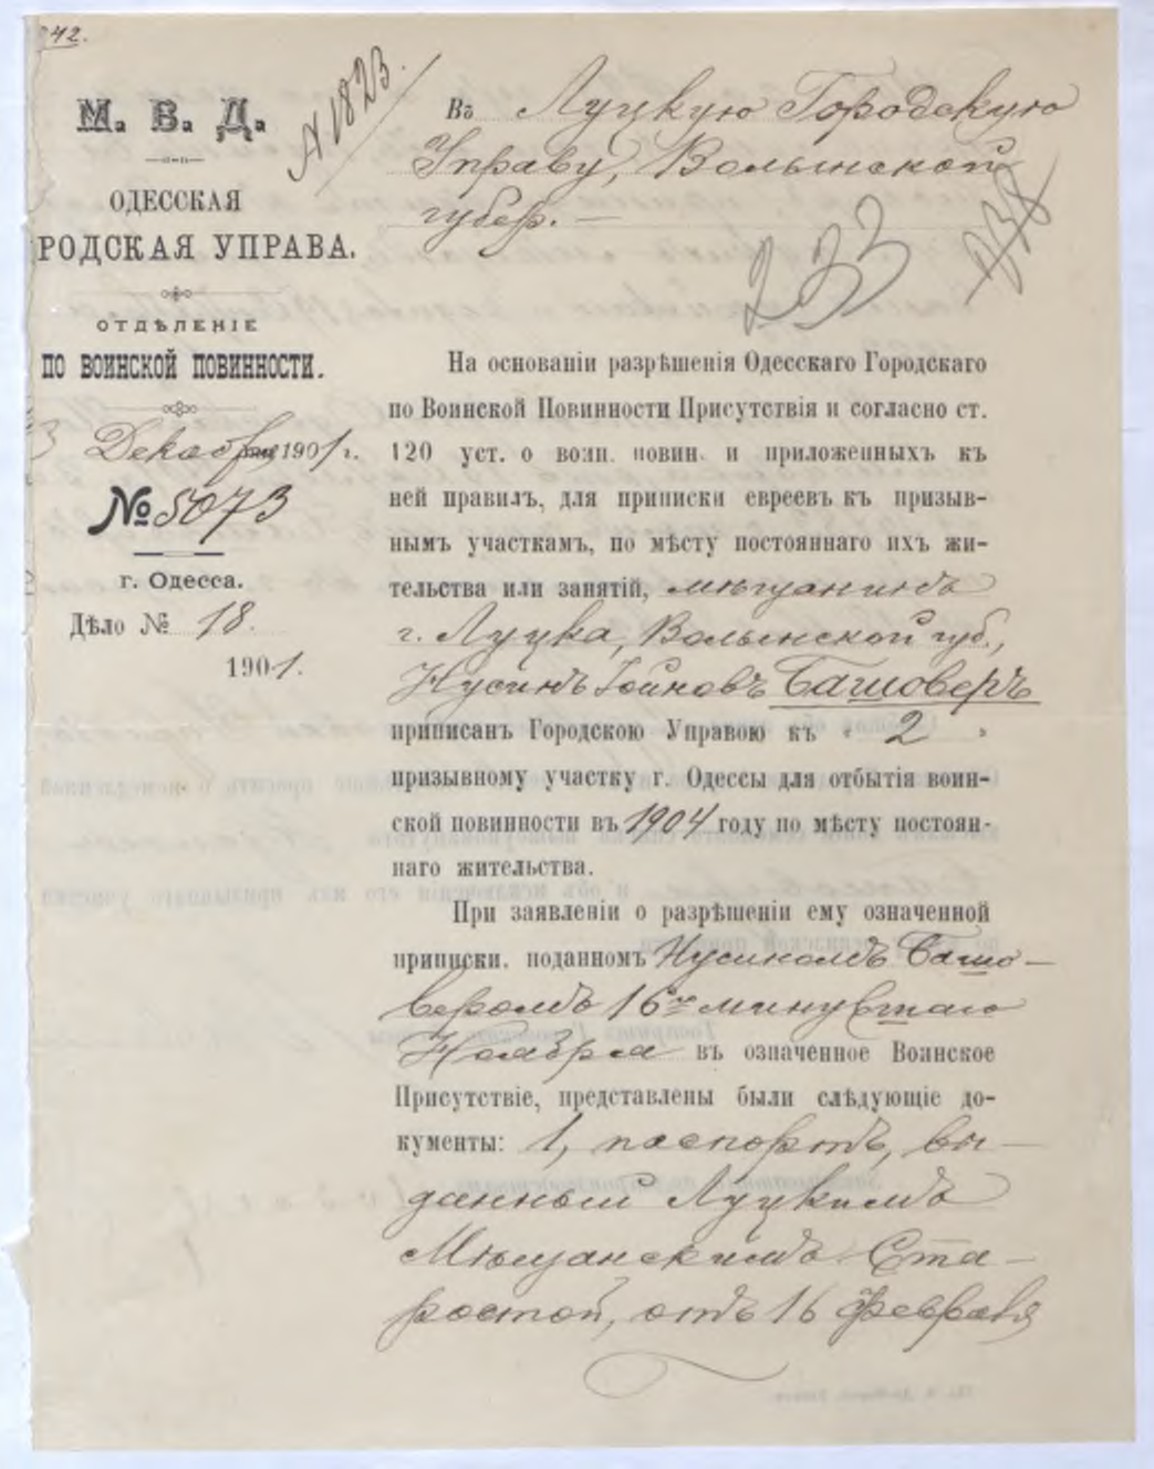 342.
М. В. Д.
ОДЕССКАЯ
РОДСКАЯ УПРАВА.
ОТДѢЛЕНІЕ
ПО ВОИНСКОЙ ПОВИННОСТИ.
3 Декабря 1901 г.
№ 5073
г. Одесса.
Дѣло № 18.
1901.
№ 1823.
Въ Луцкую Городскую
Управу, Волынской
губер. —
233
На основаніи разрѣшенія Одесскаго Городскаго
по Воинской Повинности Присутствія и согласно ст.
120 уст. о воин. повин. и приложенныхъ къ
ней правилъ, для приписки евреевъ къ призыв-
нымъ участкамъ, по мѣсту постояннаго ихъ жи-
тельства или занятій, мѣщанинъ
г. Луцка, Волынской губ.,
Нусинъ Гойновъ Башоверъ
приписанъ Городскою Управою къ « 2 »
призывному участку г. Одессы для отбытія воин-
ской повинности въ 1904 году по мѣсту постоян-
наго жительства.
При заявленіи о разрѣшеніи ему означенной
приписки. поданномъ Нусиномъ Башо-
веромъ 16го минувшаго
Ноября въ означенное Воинское
Присутствіе, представлены были слѣдующіе до-
кументы: 1, паспортъ, вы-
данный Луцкимъ
Мѣщанскимъ Ста-
ростой, отъ 16 Февраля